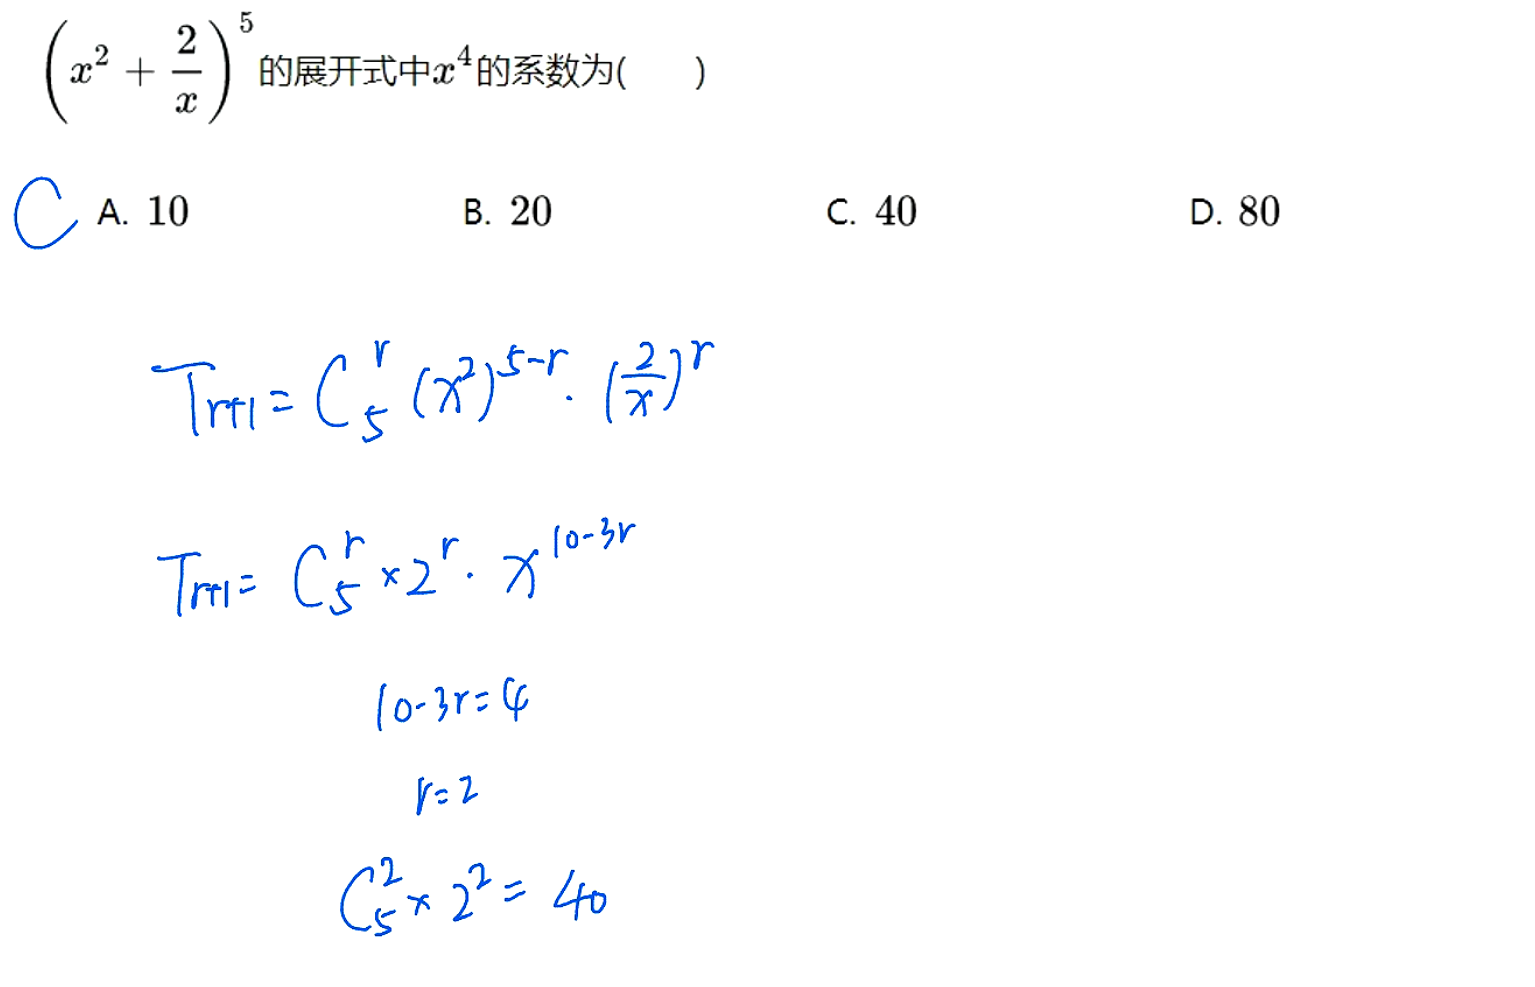 (x² + 2/x)⁵ 的展开式中x⁴的系数为(  )
C A. 10 B. 20 C. 40 D. 80
T_{r+1} = C_5^r (x²)^{5-r} · (2/x)^r
T_{r+1} = C_5^r × 2^r · x^{10-3r}
10-3r=4
r=2
C_5^2 × 2² = 40